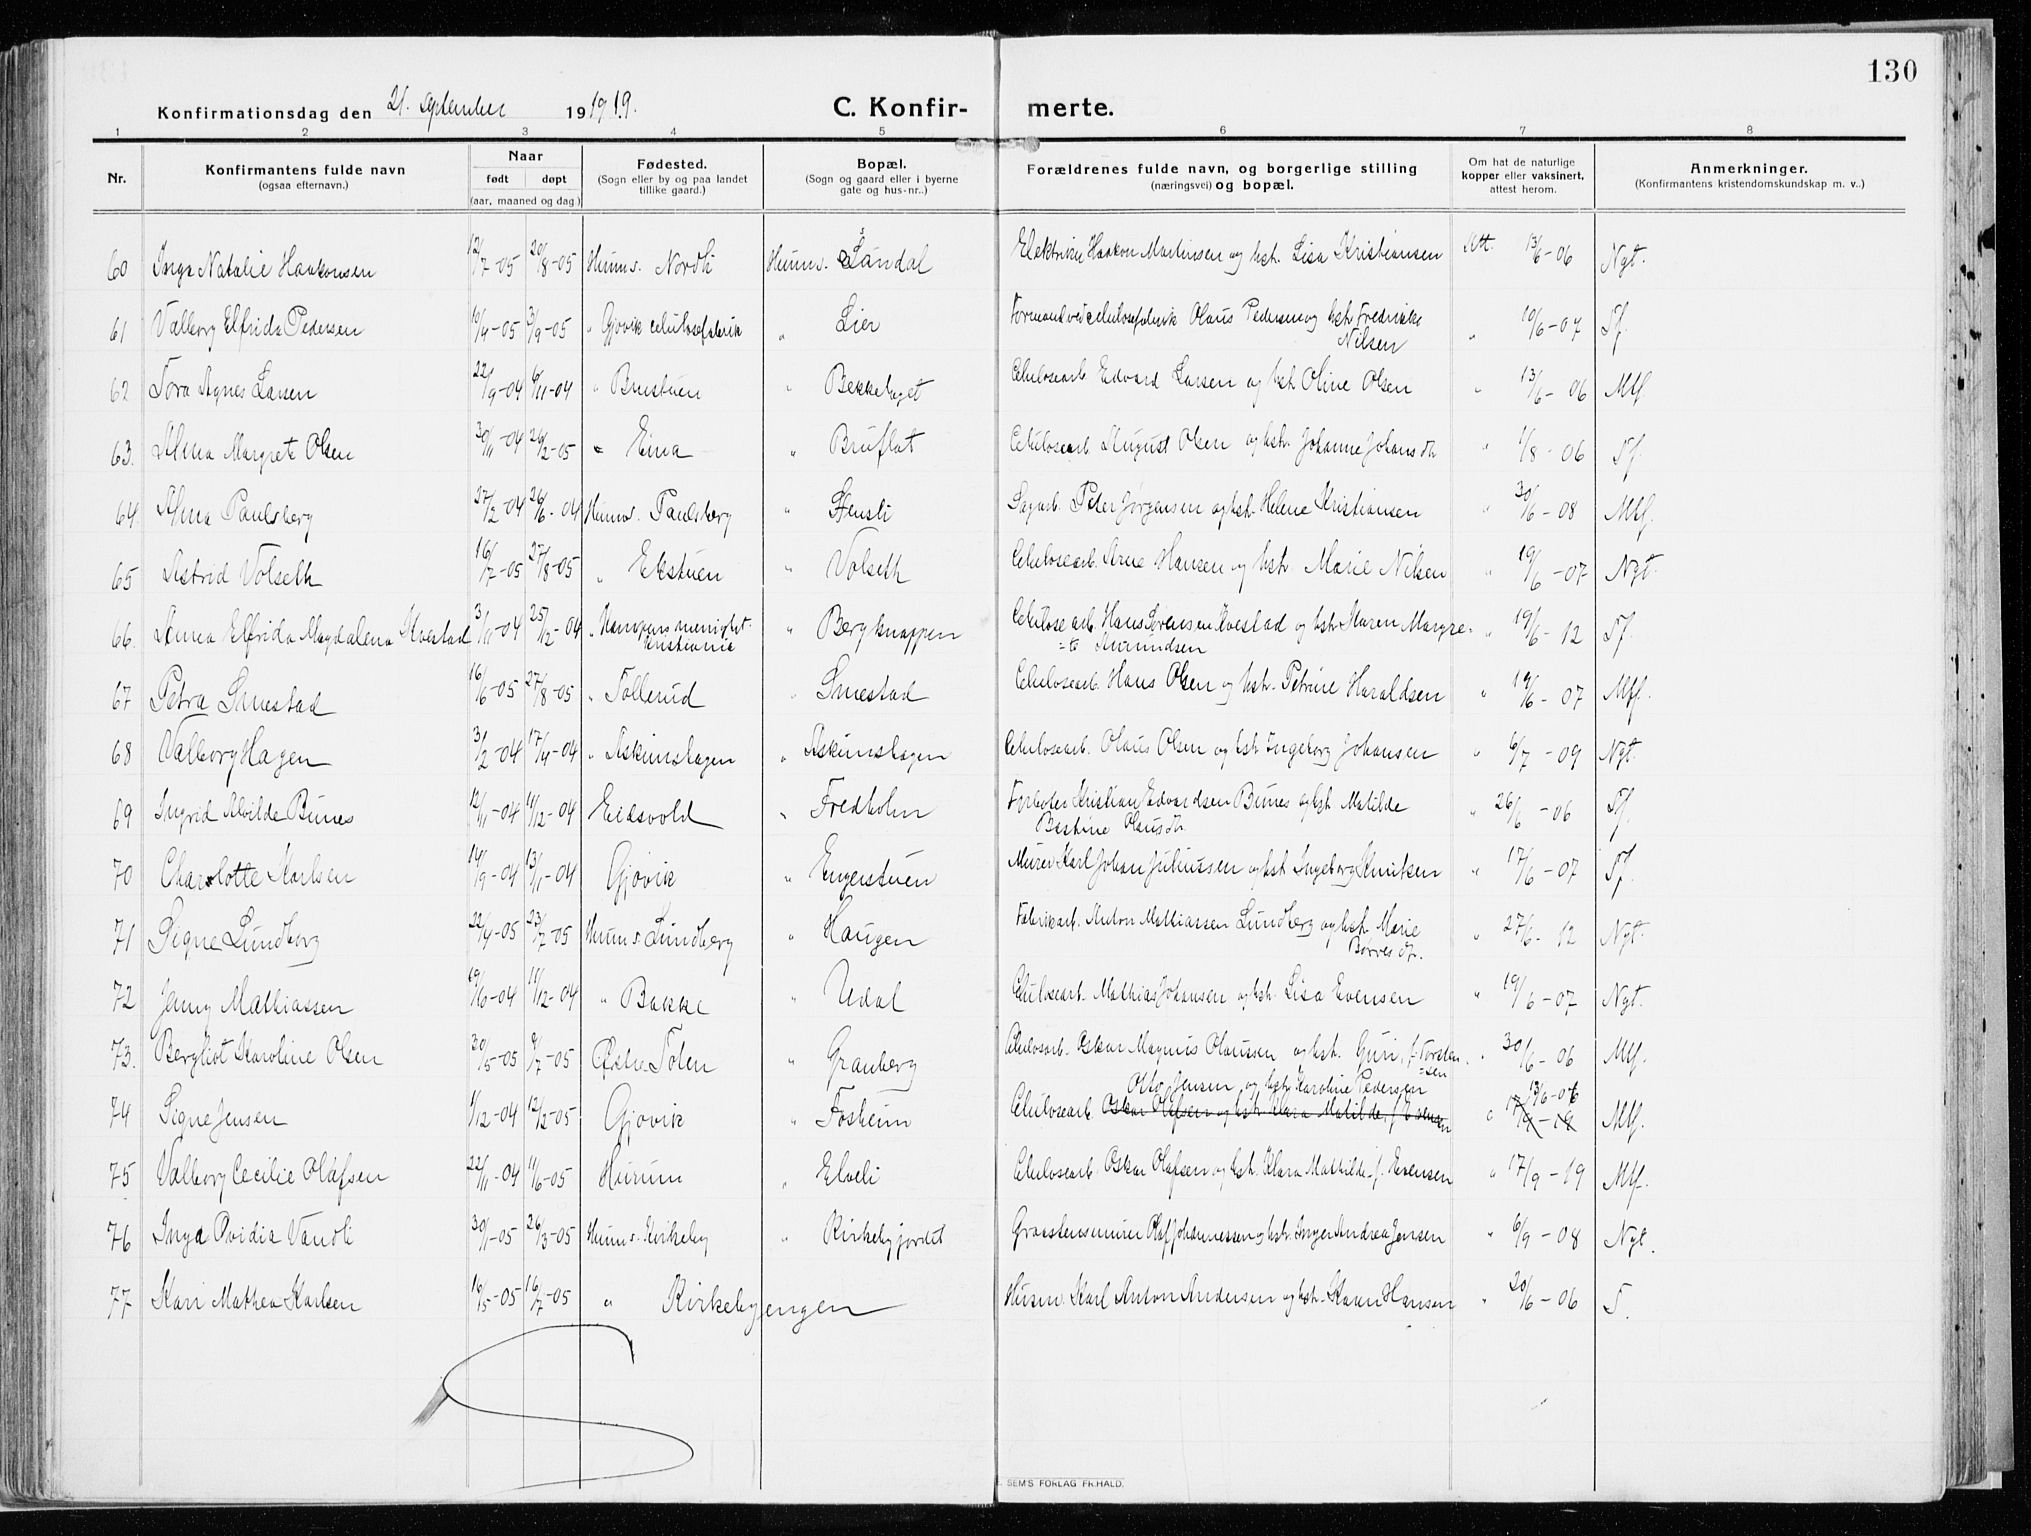 130
Konfirmationsdag den 21. september 1919.
C. Konfir- merte.
1 2 3 4 5 6 7 8
Nr. Konfirmantens fulde navn (ogsaa efternavn.) Naar født døpt (aar, maaned og dag) Fødested. (Sogn eller by og paa landet tillike gaard.) Bopæl. (Sogn og gaard eller i byerne gate og hus-nr..) Forældrenes fulde navn, og borgerlige stilling (næringsvei) og bopæl. Om hat de naturlige kopper eller vaksinert, attest herom. Anmerkninger. (Konfirmantens kristendomskundskap m. v..)
60 Inga Natalie Haakonsen 12/7-05 20/8-05 Hunns. Nordli Hunns. Sandal Elektriker Haakon Martinsen og hst. Lisa Kristiansen Att. 13/6-06 Ngt.
61 Valborg Elfrida Pedersen 10/4-05 3/9-05 " Gjøvik celulosefabrik " Lier Formand ved celulosefabrik Olaus Pedersen og hst. Fredrikke Nilsen " 19/6-07 Tf.
62 Tora Agnes Larsen 22/9-04 6/11-04 " Brustuen " Bekkehaget Celulosearb. Edvard Larsen og hst. Oline Olsen " 13/6-06 Mtf.
63. Alma Margrete Olsen 30/11-04 26/2-05 " Eina " Bruflat Celulosearb. August Olsen og hst. Johanne Johansdtr. " 1/8-06 Tf.
64. Alma Paulsberg 27/2-04 26/6-04 Hunns. Paulsberg " Stensli Sagarb. Peter Jørgensen og hst. Helene Kristiansen " 30/6-08 Mtf.
65 Astrid Volseth 16/7-05 27/8-05 " Ekstuen " Volseth Celulosearb. Arne Hansen og hst. Marie Nilsen " 19/6-07 Ngt.
66. Anna Elfrida Magdalena Kvestad 3/11-04 25/12-04 " Kampens menighet. Kristiania " Bergknappen Celulosearb. Hans Sørensen Kvestad og hst. Karen Margre-
=te Amundsen " 19/6-12 Tf.
67 Petra Smestad 16/6-05 27/8-05 " Tollerud " Smestad Celulosearb. Hans Olsen og hst. Petrine Haraldsen " 19/6-07 Mtf.
68 Valborg Hagen 3/2-04 17/4-04 " Askimshagen " Askimshagen Celulosearb. Olaus Olsen og hst. Ingeborg Johansen " 6/7-09 Ngt.
69 Ingrid Alvilde Bunes 12/11-04 11/12-04 Eidsvold " Fredholm Fyrbøter Kristian Edvardsen Bunes og hst. Matilde
Bestine Olausdtr. " 26/6-06 Tf.
70 Charlotte Karlsen 14/9-04 13/11-04 Gjøvik " Engerstuen Murer Karl Johan Juliussen og hst. Ingeborg Knutsen " 17/6-07 Tf.
71 Signe Lundberg 22/4-05 23/7-05 Hunns. Lundberg " Haugen Fabrikarb. Anton Mathiassen Lundberg og hst. Marie
Børresdtr. " 27/6-12 Ngt.
72 Jenny Mathiassen 19/10-04 11/12-04 " Bakke " Udal Celulosearb. Mathias Johansen og hst. Lisa Evensen " 19/6-07 Ngt.
73. Bergliot Karoline Olsen 30/5-05 9/7-05 Østre Toten " Granberg Celulosarb. Oskar Magnus Olaussen og hst. Guri, f. Torsten
=sen " 30/6-06 Mtf.
Otto Jensen og hst. Karoline Pedersen 13/6-06
74 Signe Jensen 1/12-04 12/2-05 Gjøvik " Fosheim Celulosearb. Oskar Olafsen og hst. Klara Matilde, f. Evensen " 17/9-19 Mtf.
75 Valborg Cecilie Olafsen 22/11-04 11/6-05 Hurum " Elveli Celulosearb. Oskar Olafsen og hst. Klara Mathilde f. Evensen " 17/9-19 Mtf.
76 Inga Ovidia Vandli 30/1-05 26/3-05 Hunns. Kirkeby " Kirkebyjordet Graastensmurer Olaf Johannessen og hst. Inger Andrea Jensen " 6/9-08 Ngt.
77 Kari Mathea Karlsen 19/5-05 16/7-05 " Kirkebyengen Husm. Karl Anton Andersen og hst. Karen Hansen " 20/6-06 T.
SEM'S FORLAG FR.HALD.